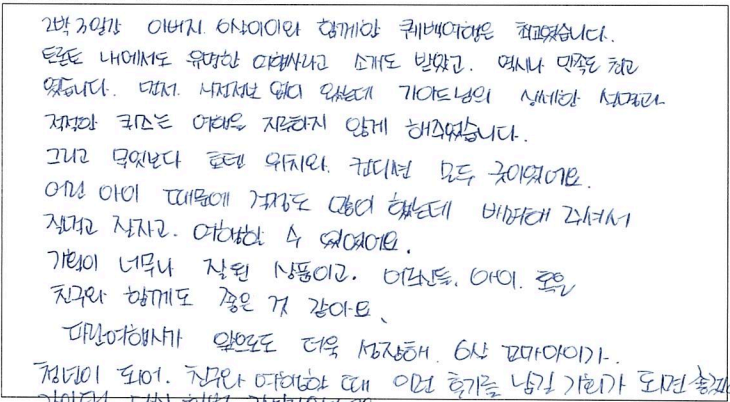 2박 3일간 아버지. 6살아이와 함께한 퀘백여행은 최고였습니다.
토론토 내에서도 유명한 여행사라고 소개도 받았고. 역시나 만족도 최고
였습니다. 먼저. 사전정보 없이 왔는데 가이드님의 상세한 설명과
적절한 퀴즈는 여행을 지루하지 않게 해주었습니다.
그리고 무엇보다 호텔 위치와. 컨디션 모두 굿이였어요.
어린 아이 때문에 걱정도 많이 했는데 배려해 주셔서
잘먹고 잘자고. 여행할 수 있었어요.
기획이 너무나 잘된 상품이고. 어르신들. 아이. 혹은
친구와 함께도 좋은 것 같아요.
파란여행사가 앞으로도 더욱 성장해. 6살 꼬마아이가.
청년이 되어. 친구와 여행할 때 이런 후기를 남길 기회가 되면